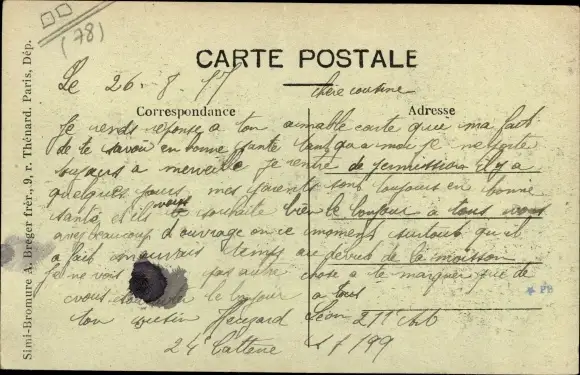 (78)
CARTE POSTALE
Le 26. 8. 17
chère cousine
Correspondance
Adresse
Je rends réponse a ton aimable carte qui ma fait
de te savoir en bonne santé tant qua moi je me porte
toujours a merveille je rentre de permission il y a
quelques jours, mes parents sont toujours en bonne
santé et ils vous souhaite bien le bonjour a tous vous
avez beaucoup d'ouvrage en ce moment surtout qu'il
a fait mauvais temps au début de la moisson
Je ne vois pas autre chose a te marquer que de
vous le bonjour a tous
ton cousin Léon 211e
24e Batterie
Simi-Bromure A. Breger frèr., 9, r. Thénard, Paris, Dép.